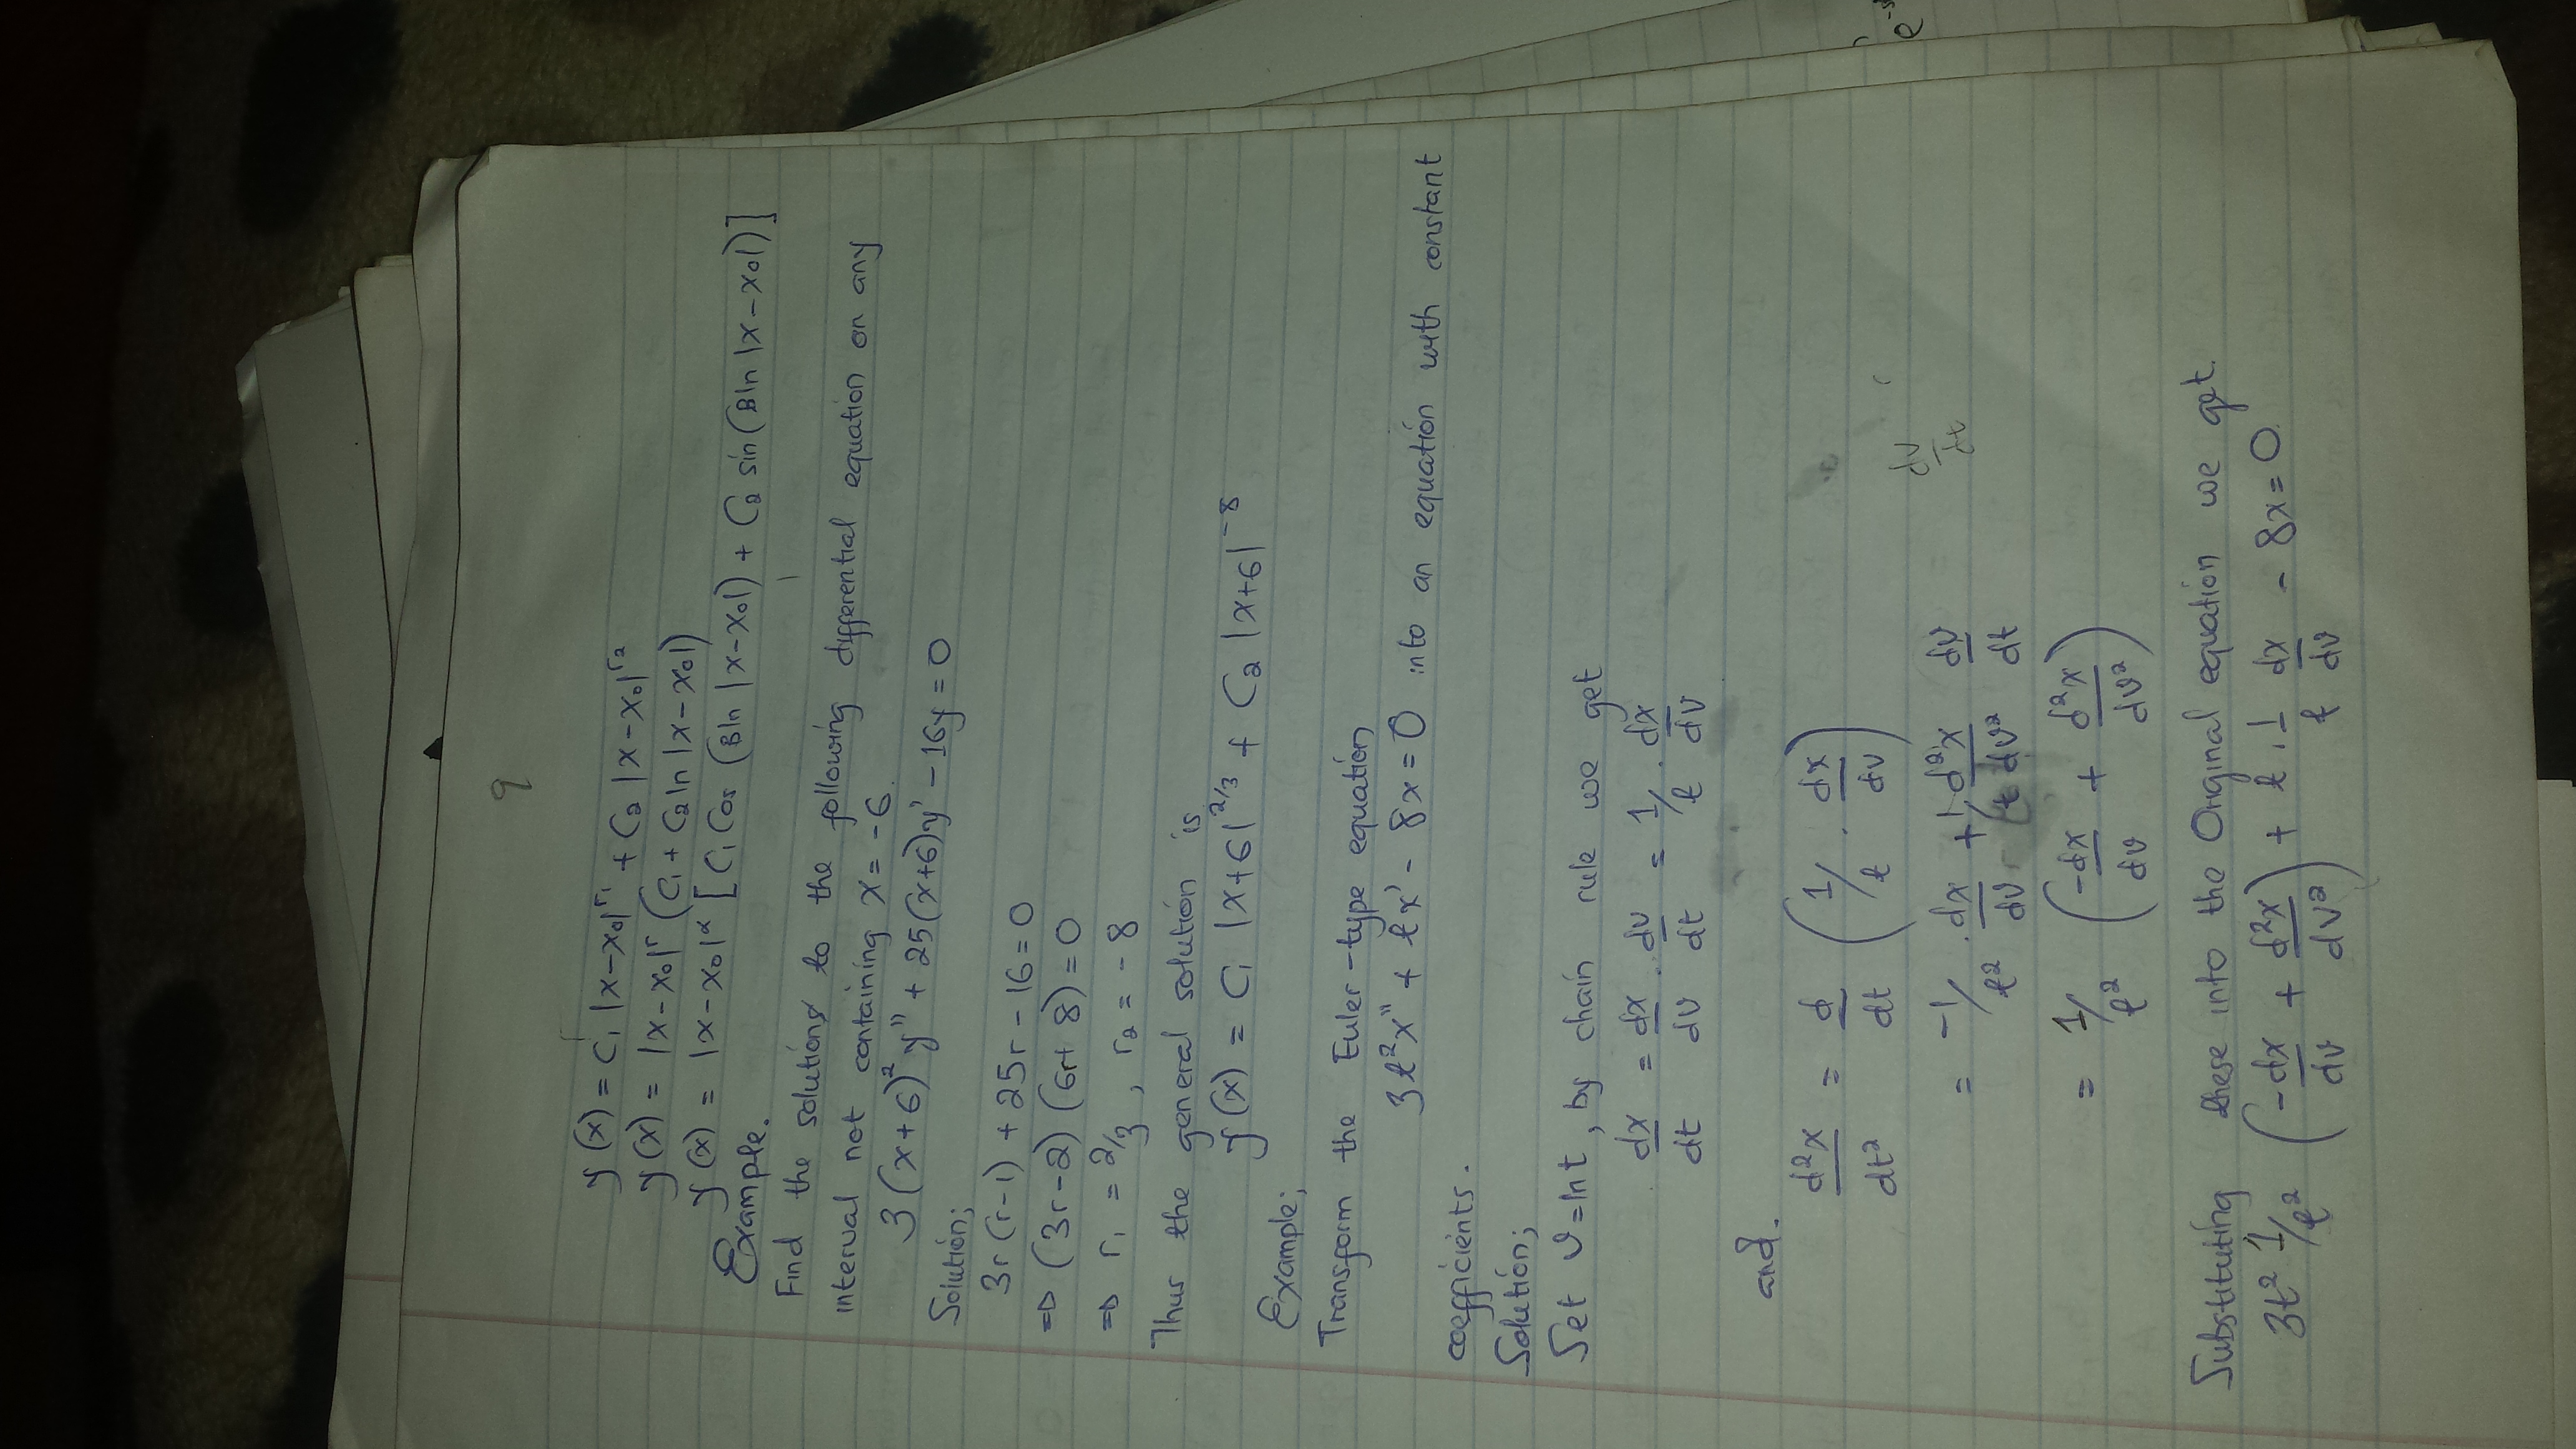 9
y(x) = C₁ |x-x₀|^r₁ + C₂ |x-x₀|^r₂
y(x) = |x-x₀|^r (C₁ + C₂ ln |x-x₀|)
y(x) = |x-x₀|^α [C₁ Cos (B ln |x-x₀|) + C₂ sin (B ln |x-x₀|)]
Example.
Find the solutions to the following differential equation on any
interval not containing x = -6.
3(x+6)² y'' + 25(x+6)y' - 16y = 0
Solution;
3r(r-1) + 25r - 16 = 0
⇒ (3r-2)(6r+8) = 0
⇒ r₁ = 2/3, r₂ = -8
Thus the general solution is
y(x) = C₁ |x+6|^2/3 + C₂ |x+6|^-8
Example;
Transform the Euler-type equation
3t²x'' + tx' - 8x = 0 into an equation with constant
coefficients.
Solution;
Set v = ln t, by chain rule we get
dx/dt = dx/dv . dv/dt = 1/t . dx/dv
and.
d²x/dt² = d/dt (1/t . dx/dv)
= -1/t² . dx/dv + 1/t d²x/dv² dv/dt
dv/dt
= 1/t² (-dx/dv + d²x/dv²)
Substituting these into the Original equation we get.
3t² 1/t² (-dx/dv + d²x/dv²) + t . 1/t dx/dv - 8x = 0.
e^-s